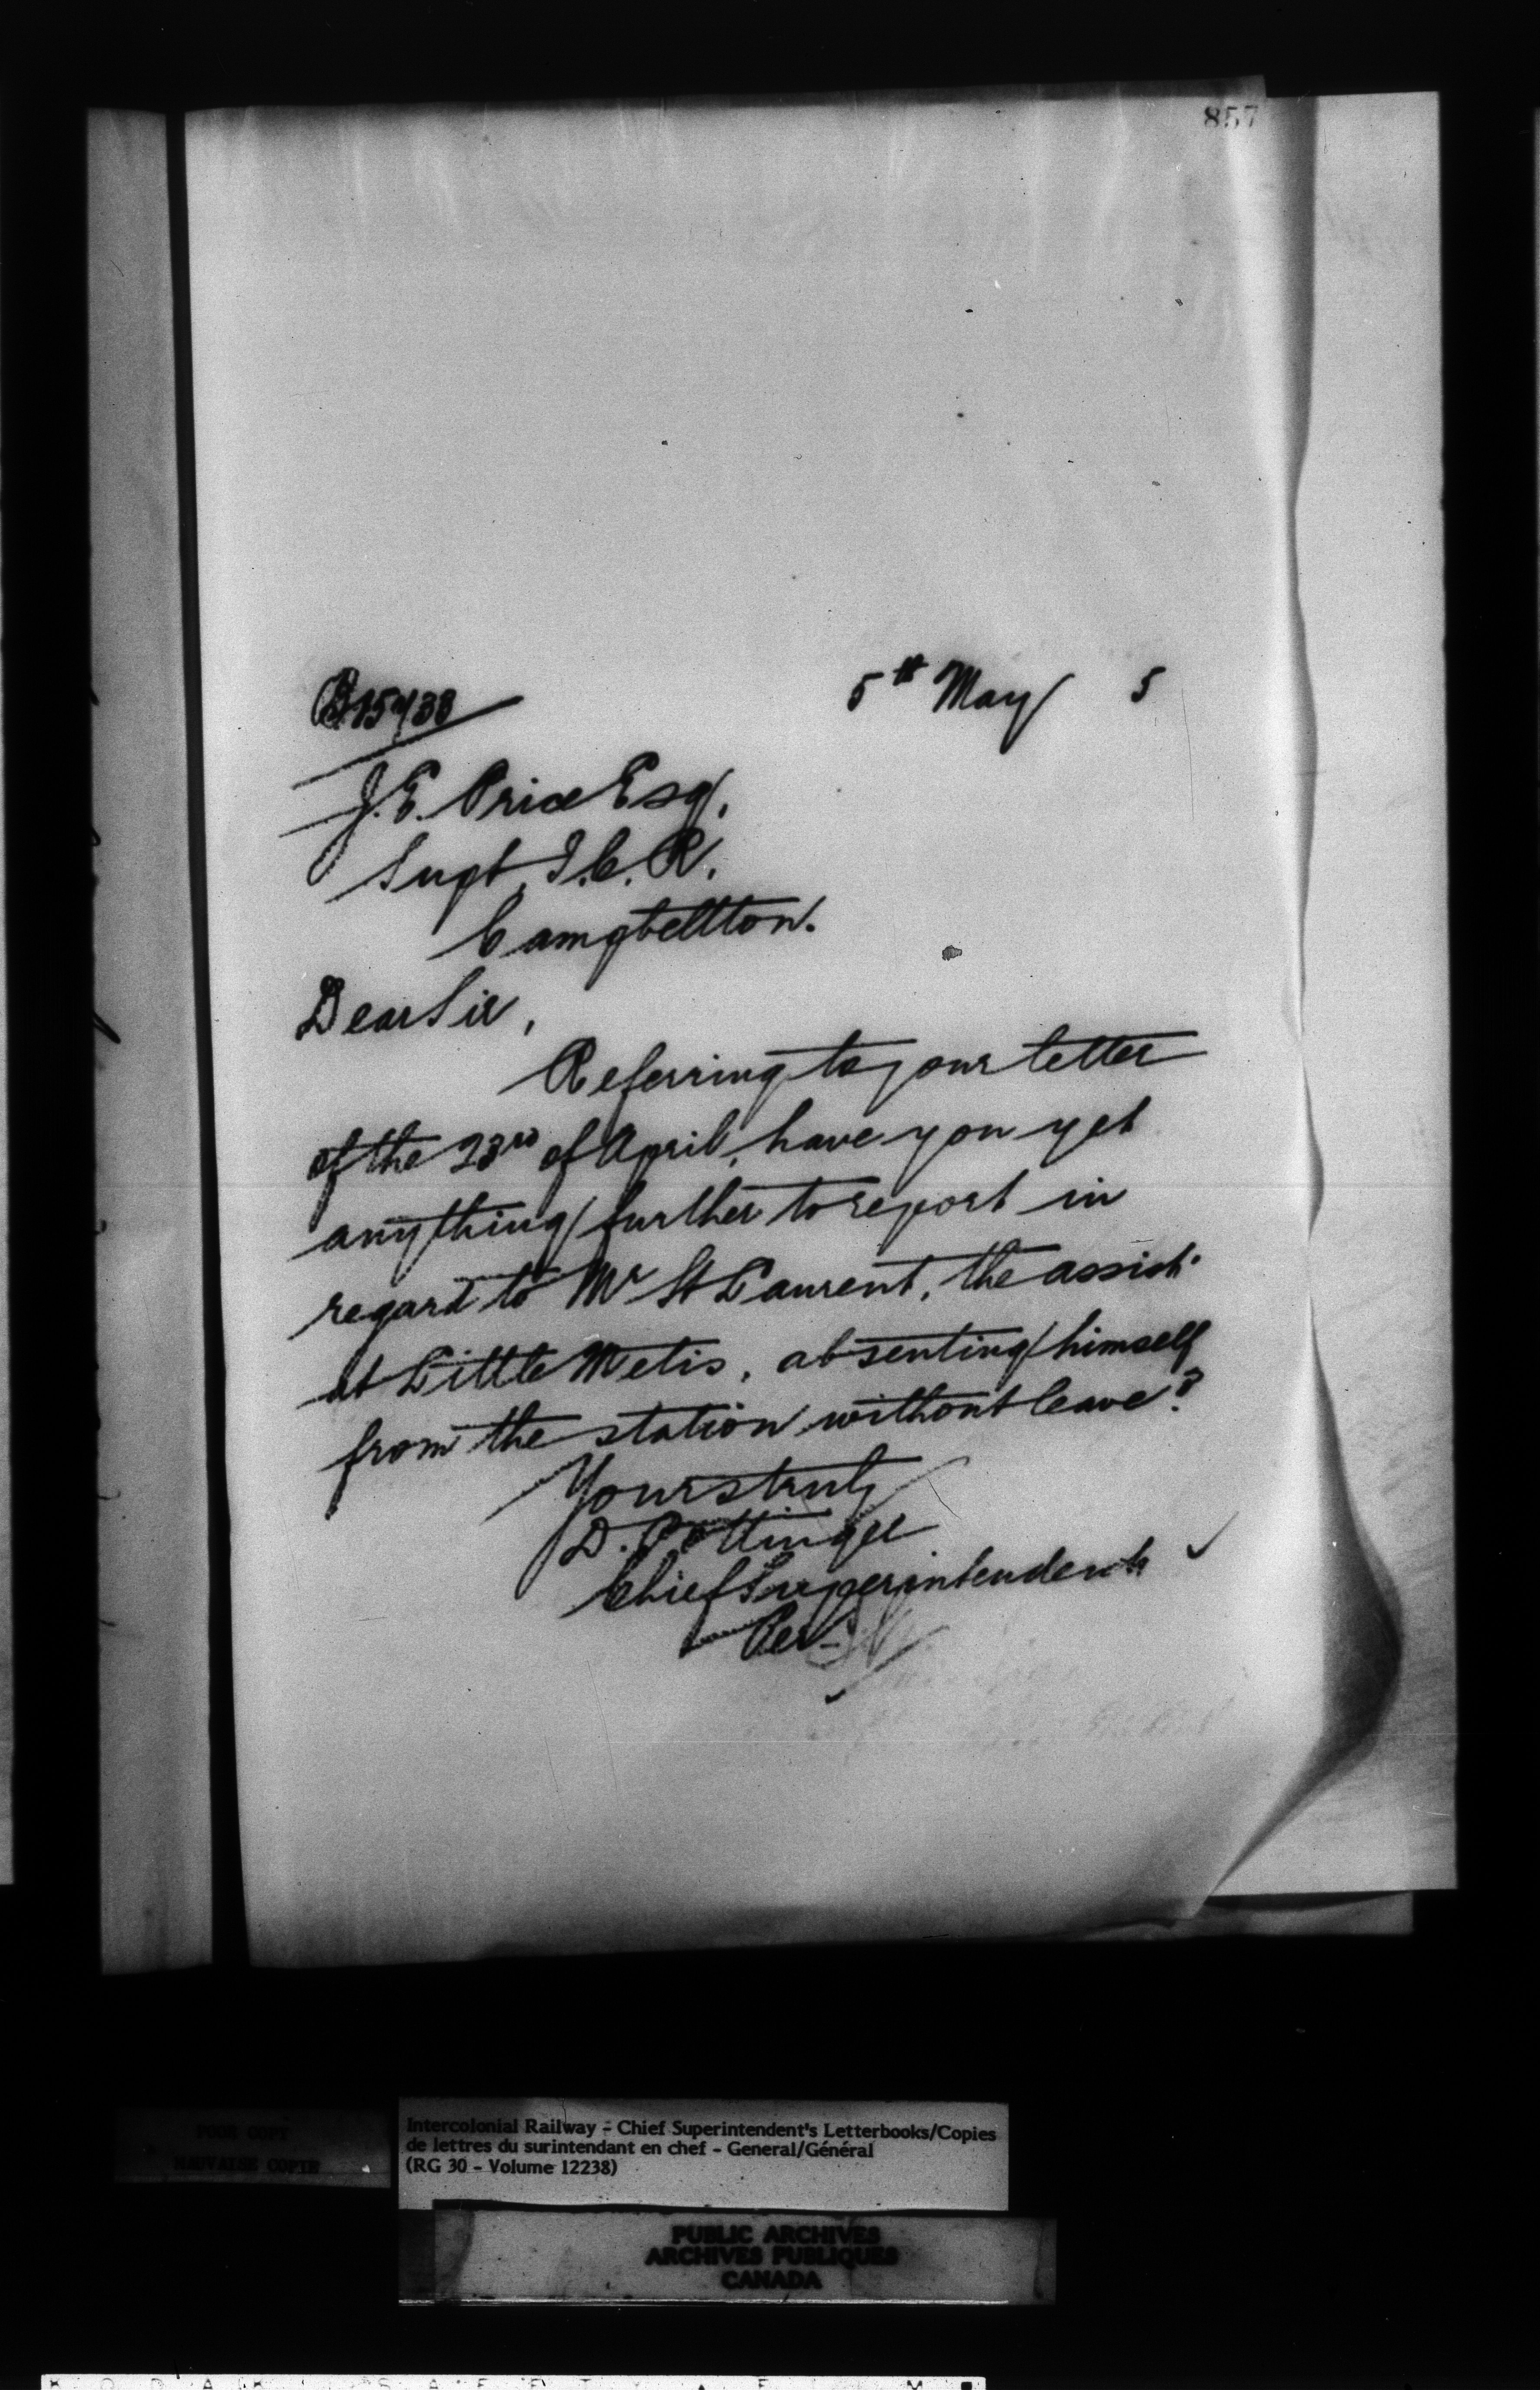 857
5th May 5
J. E. Price Esq.
Supt. I.C.R.
Campbellton.
Dear Sir,
Referring to your letter
of the 23rd of April, have you yet
anything further to report in
regard to Mr St Laurent, the assist.
at Little Metis, absenting himself
from the station without leave?
Yours truly
D. Pottinger
Chief Superintendent
Per
POOR COPY
MAUVAISE COPIE
Intercolonial Railway - Chief Superintendent's Letterbooks/Copies
de lettres du surintendant en chef - General/Général
(RG 30 - Volume 12238)
PUBLIC ARCHIVES
ARCHIVES PUBLIQUES
CANADA